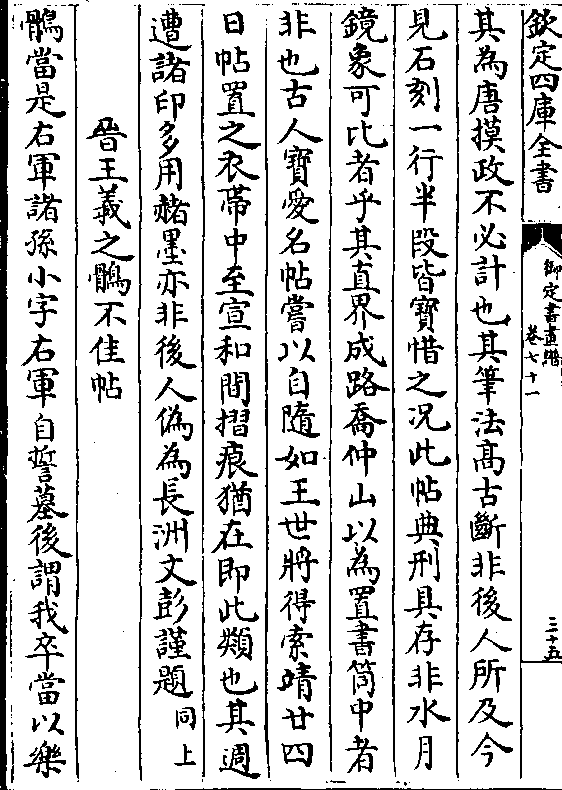 欽定四庫全書
御定書畫譜
卷七十一
三十五
其為唐摸政不必計也其筆法髙古斷非後人所及今
見石刻一行半段皆寳惜之況此帖典刑具存非水月
鏡象可比者乎其直界成路喬仲山以為置書筒中者
非也古人寳愛名帖嘗以自隨如王世將得索靖廿四
日帖置之衣帶中至宣和間摺痕猶在即此類也其週
遭諸印多用赭墨亦非後人偽為長洲文彭謹題 同上
晉王羲之鶻不佳帖
鶻當是右軍諸孫小字右軍自誓墓後謂我卒當以樂